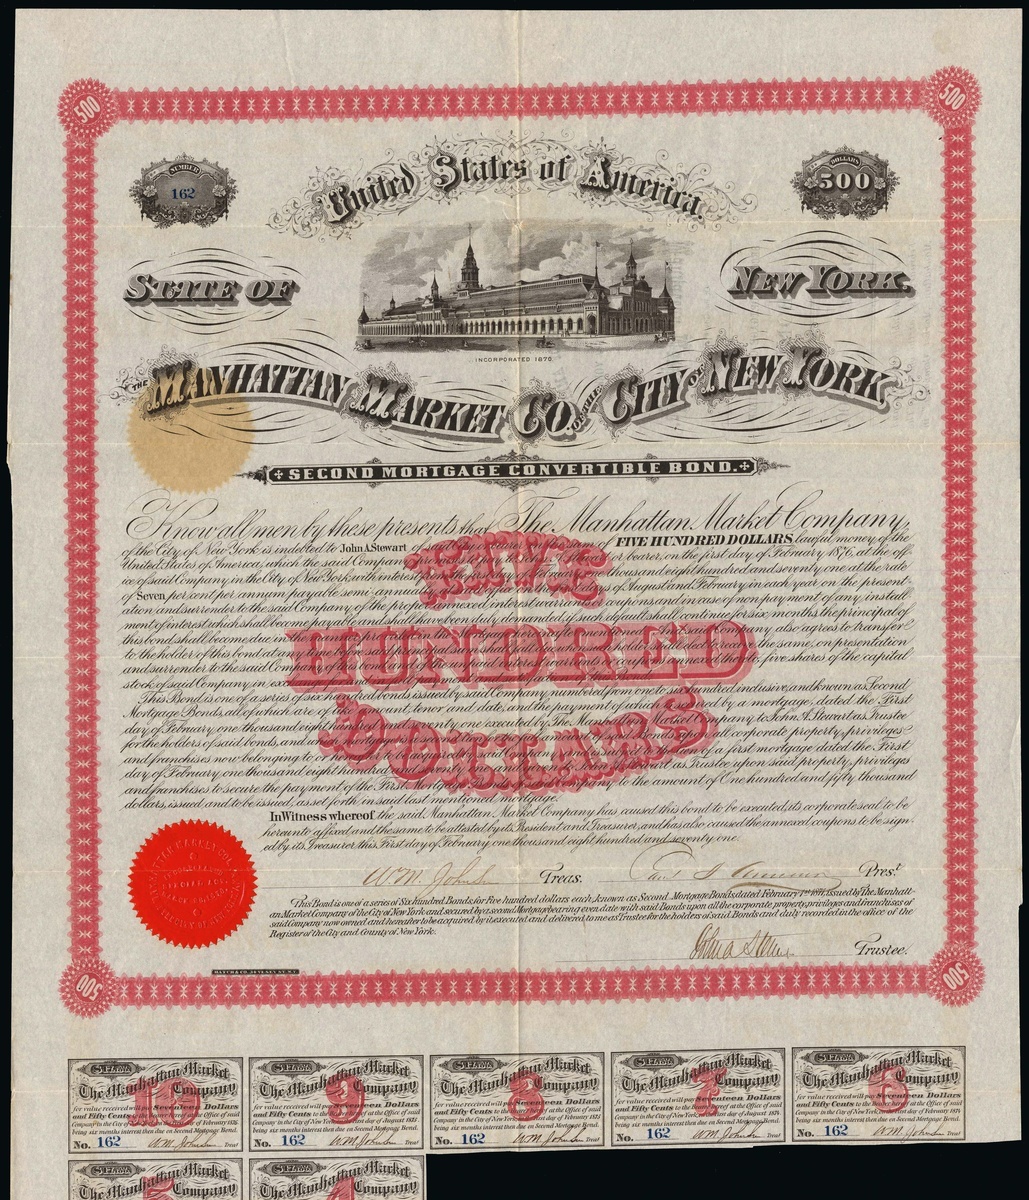 500
500
United States of America.
NUMBER
162
DOLLARS
500
STATE OF
NEW YORK.
INCORPORATED 1870.
THE MANHATTAN MARKET CO. OF THE CITY OF NEW YORK
SECOND MORTGAGE CONVERTIBLE BOND.
Know all men by these presents that The Manhattan Market Company,
of the City of New York is indebted to John A. Stewart of said City or bearer in the sum of FIVE HUNDRED DOLLARS lawful money of the
United States of America, which the said Company promises to pay to John A. Stewart or bearer, on the first day of February 1876, at the off-
ice of said Company, in the City of New York, with interest from the first day of February, one thousand eight hundred and seventy one, at the rate
of Seven per cent per annum payable semi-annually, days of August and February in each year on the present-
ation and surrender to the said Company of the proper annexed interest warrants or coupons, and in case of non payment of any, install
ment of interest which shall become payable and shall have been duly demanded, if such default shall continue for six months the principal of
this bond shall become due in the manner provided in the mortgage hereinafter mentioned. And said Company also agrees to transfer
to the holder of this bond at any time before said principal sum shall fall on presentation
and surrender to the said Company of this bond and the unpaid interest warrants or coupons annexed thereto, five shares of the capital
stock of said Company, in
This Bond is one of a series of six hundred bonds issued by said Company, numbered from one to six hundred, inclusive, and known as Second
Mortgage Bonds, all of which are of like amount, tenor and date, and the payment of which is secured by a mortgage, dated the First
day of February, one thousand eight hundred and seventy one executed by The Manhattan Market Company to John A. Stewart as Trustee
for the holders of said bonds, and all corporate property, privileges
and franchises now belonging to or hereafter to be acquired by said Company and is subject to the lien of a first mortgage dated the First
day of February one thousand eight hundred and seventy one and given to John A. Stewart as Trustee upon said property, privileges
and franchises to secure the payment of the First Mortgage Bonds of said Company to the amount of One hundred and fifty thousand
dollars, issued and to be issued, as set forth in said last mentioned mortgage.
FIVE
HUNDRED
DOLLARS
In Witness whereof the said, Manhattan Market Company has caused this bond to be executed, its corporate seal to be
hereunto affixed and the same to be attested by its President and Treasurer, and has also caused the annexed coupons to be sign-
ed by its Treasurer this First day of February, one thousand eight hundred and seventy one.
Wm. Johnston Treas. Pres.t
This Bond is one of a series of Six hundred Bonds, for Five hundred dollars each, known as Second Mortgage Bonds, dated February 1st 1871, issued by The Manhatt-
an Market Company of the City of New York and secured by a second Mortgage bearing even date with said Bonds upon all the corporate property, privileges and franchises of
said Company now owned and hereafter to be acquired by it executed and delivered to me as Trustee for the holders of said Bonds and duly recorded in the office of the
Register of the City and County of New York.
John A Stewart Trustee.
HATCH & CO.
500
500
The Manhattan Market
10 Company
for value received will pay Seventeen Dollars
and Fifty Cents to the bearer at the Office of said
Company in the City of New York, on the first day of February 1876
being six months interest then due on Second Mortgage Bond.
No. 162 Wm. Johnston Treas.r
The Manhattan Market
9 Company
for value received will pay Seventeen Dollars
and Fifty Cents to the bearer at the Office of said
Company in the City of New York, on the first day of August 1875
being six months interest then due on Second Mortgage Bond.
No. 162 Wm. Johnston Treas.r
The Manhattan Market
8 Company
for value received will pay Seventeen Dollars
and Fifty Cents to the bearer at the Office of said
Company in the City of New York, on the first day of February 1875
being six months interest then due on Second Mortgage Bond.
No. 162 Wm. Johnston Treas.r
The Manhattan Market
7 Company
for value received will pay Seventeen Dollars
and Fifty Cents to the bearer at the Office of said
Company in the City of New York, on the first day of August 1874
being six months interest then due on Second Mortgage Bond.
No. 162 Wm. Johnston Treas.r
The Manhattan Market
6 Company
for value received will pay Seventeen Dollars
and Fifty Cents to the bearer at the Office of said
Company in the City of New York, on the first day of February 1874
being six months interest then due on Second Mortgage Bond.
No. 162 Wm. Johnston Treas.r
The Manhattan Market
5 Company
The Manhattan Market
4 Company